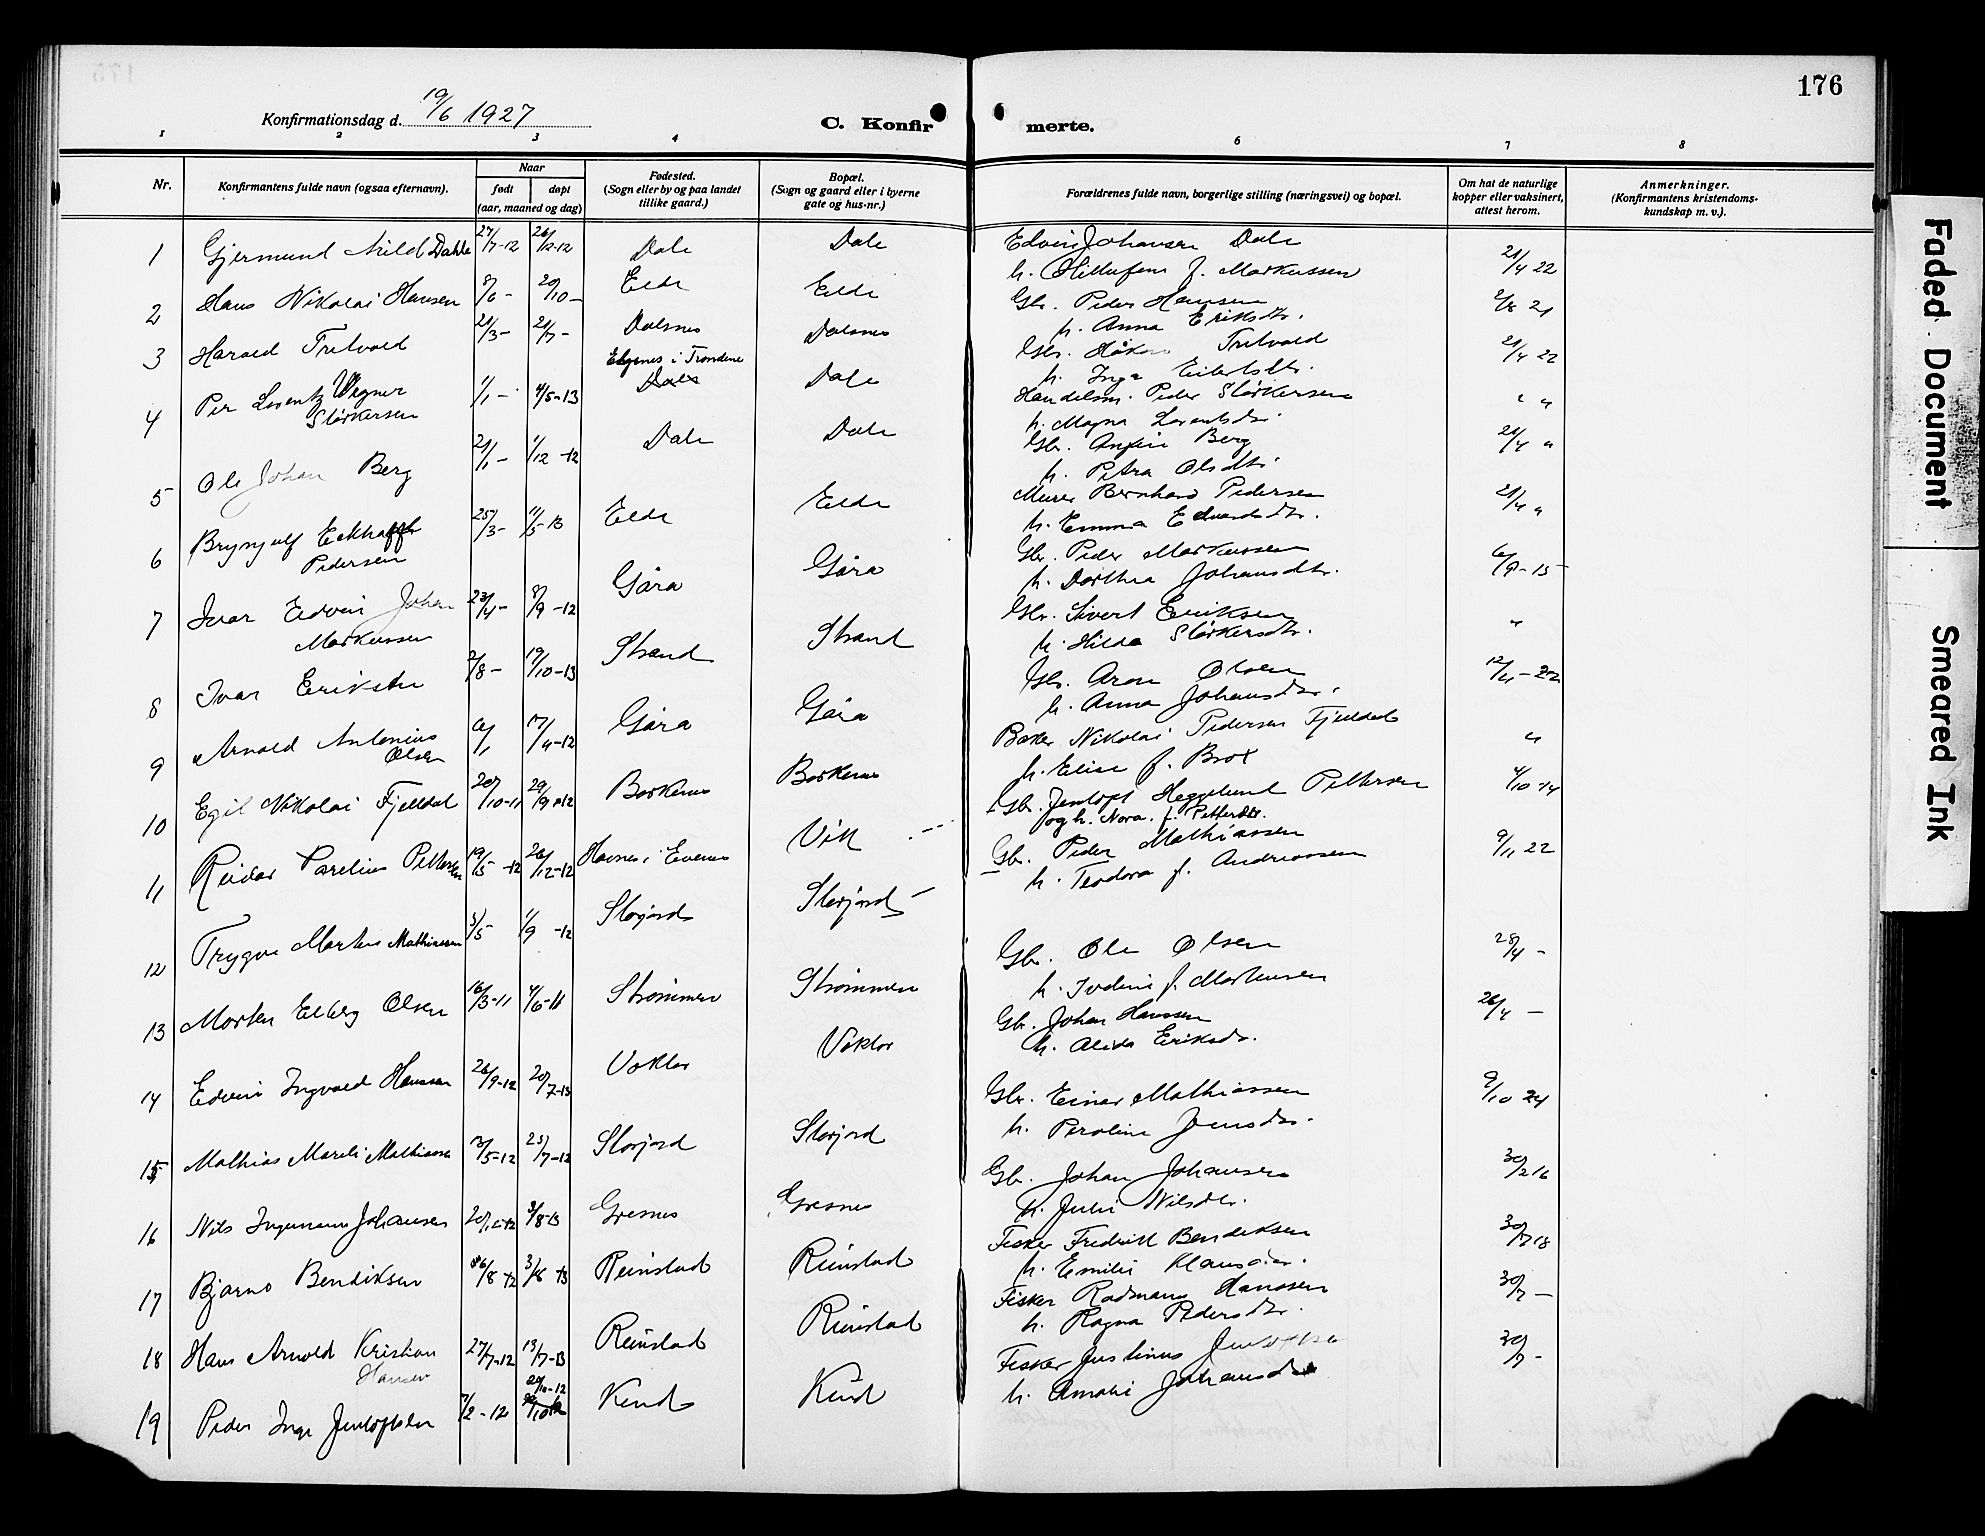 176
Konfirmationsdag d. 19/6 1927
C. Konfirmerte.
1 2 3 4 6 7 8
Nr.
Konfirmantens fulde navn (ogsaa efternavn).
Naar
født døpt
(aar, maaned og dag)
Fødested.
(Sogn eller by og paa landet
tillike gaard.)
Bopæl.
(Sogn og gaard eller i byerne
gate og hus-nr.)
Forældrenes fulde navn, borgerlige stilling (næringsvei) og bopæl.
Om hat de naturlige
kopper eller vaksinert,
attest herom.
Anmerkninger.
(Konfirmantens kristendoms-
kundskap m. v.).
1 Gjermund Dahle 27/7-12 26/12-12 Dale Dale Edvin Johansen Dale 21/4 22
h. f. Markussen
2 Hans Nikolai Hansen 8/6 - 20/10 - Elde Elde Gbr. Peder Hansen 2/8 21
h. Anna Eriksdtr.
3 Harald Tretvold 21/3 - 21/7 - Dalsnes Dalsnes Gbr. Håkon Tretvold 21/4 22
h. Inga
4 Per Lorentz Wegner 1/1 - 4/5-13 Elgsnes i Trondenes Dale Handelsm. Peder Størkersen " "
Størkersen Dale h. Magna Lorentsdtr.
5 Ole Johan Berg 21/1 - 1/12-12 Dale Dale Gbr. Berg 21/4 "
h. Petra Olsdtr.
6 Brynjulf 25/3 - 11/5-13 Elde Elde Murer Bernhard Pedersen 21/4 "
Pedersen h. Emma Edvardsdtr.
7 Ivar Edvin Johan 23/4 - 8/9-12 Gåra Gåra Gbr. Peder Markussen 6/9-15
Markussen h. Dorthea Johansdtr.
8 Ivar Eriksen 2/8 - 19/10-13 Strand Strand Gbr. Sivert Eriksen "
h. Hilda Størkersdtr.
9 Arnold Antonius 6/1 17/4-12 Gåra Gåra Gbr. Aron Olsen 12/4-22
Olsen h. Anna Johansdtr.
10 Egil Nikolai Fjelldal 20/10-11 29/9-12 Baker Nikolai Pedersen Fjelldal "
h. Elise f. Brox
11 Reidar Parelius Pettersen 19/5-12 26/12-12 Havnes i Evenes Vik Gbr. Jentoft Heggelund Pettersen 4/10 14
og h. Nora f. Pettersdtr.
12 Trygve Martin Mathiassen 5/5 1/9-12 Storjord Storjord Gbr. Peder Mathiassen 9/11 22
h. Teodora f. Andreassen
13 Morten Elberg Olsen 16/3-11 4/6-11 Strømmen Strømmen Gbr. Ole Olsen 28/4 -
h. f. Martinsen
14 Edvin Ingvald Hanssen 26/9-12 20/7-13 Voktor Voktor Gbr. Johan Hanssen 26/4 -
h. Alida Eriksdr.
15 Mathias Mathiassen /5-12 25/7-12 Storjord Storjord Gbr. Einar Mathiassen 9/10 24
h. Peroline Jensdtr.
16 Nils Ingemann Johansen 3/8-13 Gresnes Gresnes Gbr. Johan Johansen 16
h. Julie Nilsdtr.
17 Bjarne Bendiksen /8-12 3/8-13 Reinstad Reinstad Fisker Fredrik Bendiksen 18
h. Emilie
18 Hans Arnold Kristian 27/7-12 13/7-13 Reinstad Reinstad Fisker Hanssen 30/7 -
Hansen h. Ragna Pedersdtr.
19 Peder Inge Jentoftsen 7/2-12 20/10-12 Fisker Justinus Jentoftsen 30/7 -
h. Amalie Johansdtr.
Faded Document
Smeared Ink